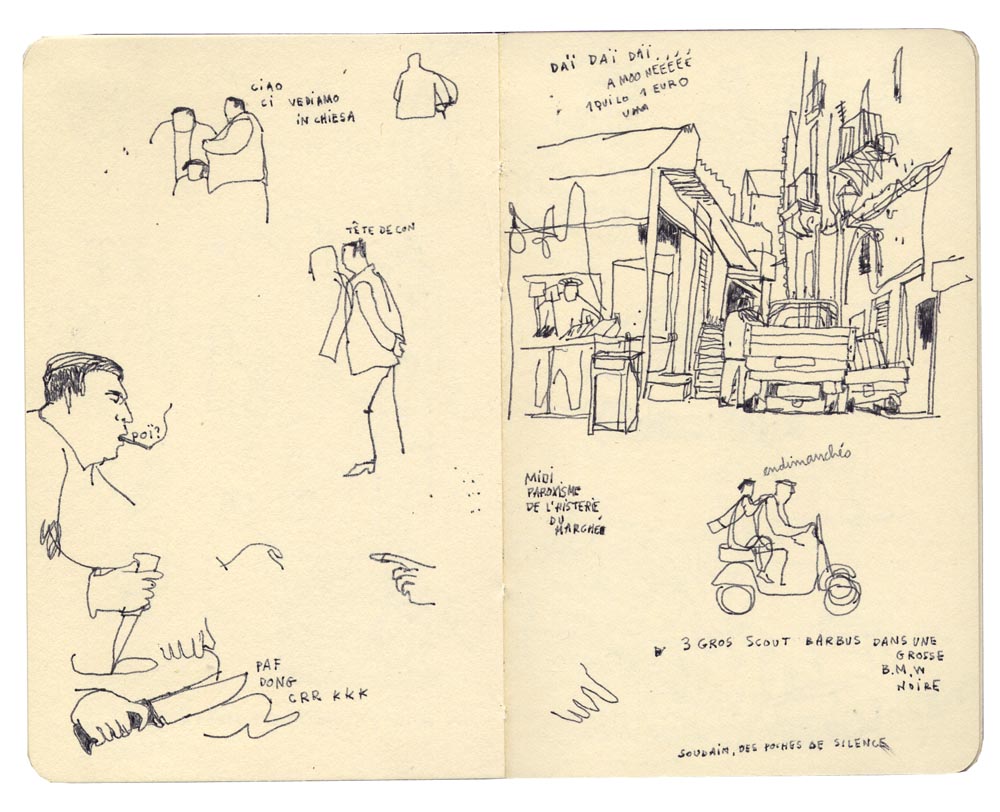 CIAO
CI VEDIAMO
IN CHIESA
TÊTE DE CON
POÏ?
PAF
DONG
CRR KKK
DAÏ DAÏ DAÏ
A MOO NEÉÉÉÉ
1 QUILO 1 EURO
UMA
MIDI
PAROXISME
DE L'HISTERIE
DU
MARCHÉE
endimanchés
3 GROS SCOUT BARBUS DANS UNE
GROSSE
B.M.W
NOIRE
SOUDAIN, DES POCHES DE SILENCE